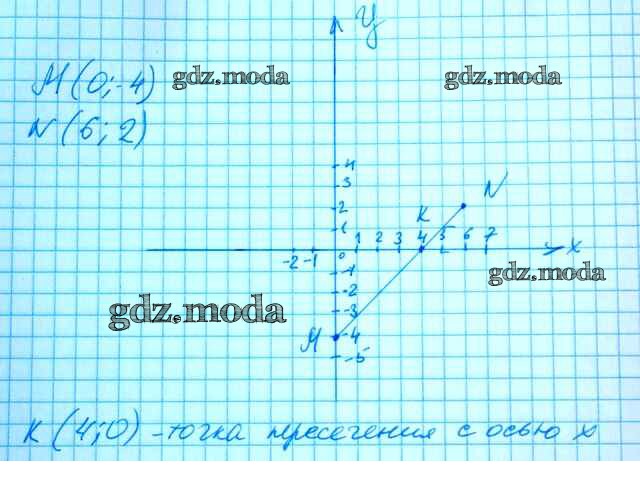 y
M(0;-4)
gdz.moda
gdz.moda
N(6;2)
4
3
2
1
K
N
1 2 3 4 5 6 7
-2 -1 0
x
-1
-2
-3
-4
-5
gdz.moda
gdz.moda
M
K(4;0) - точка пресечения с осью x